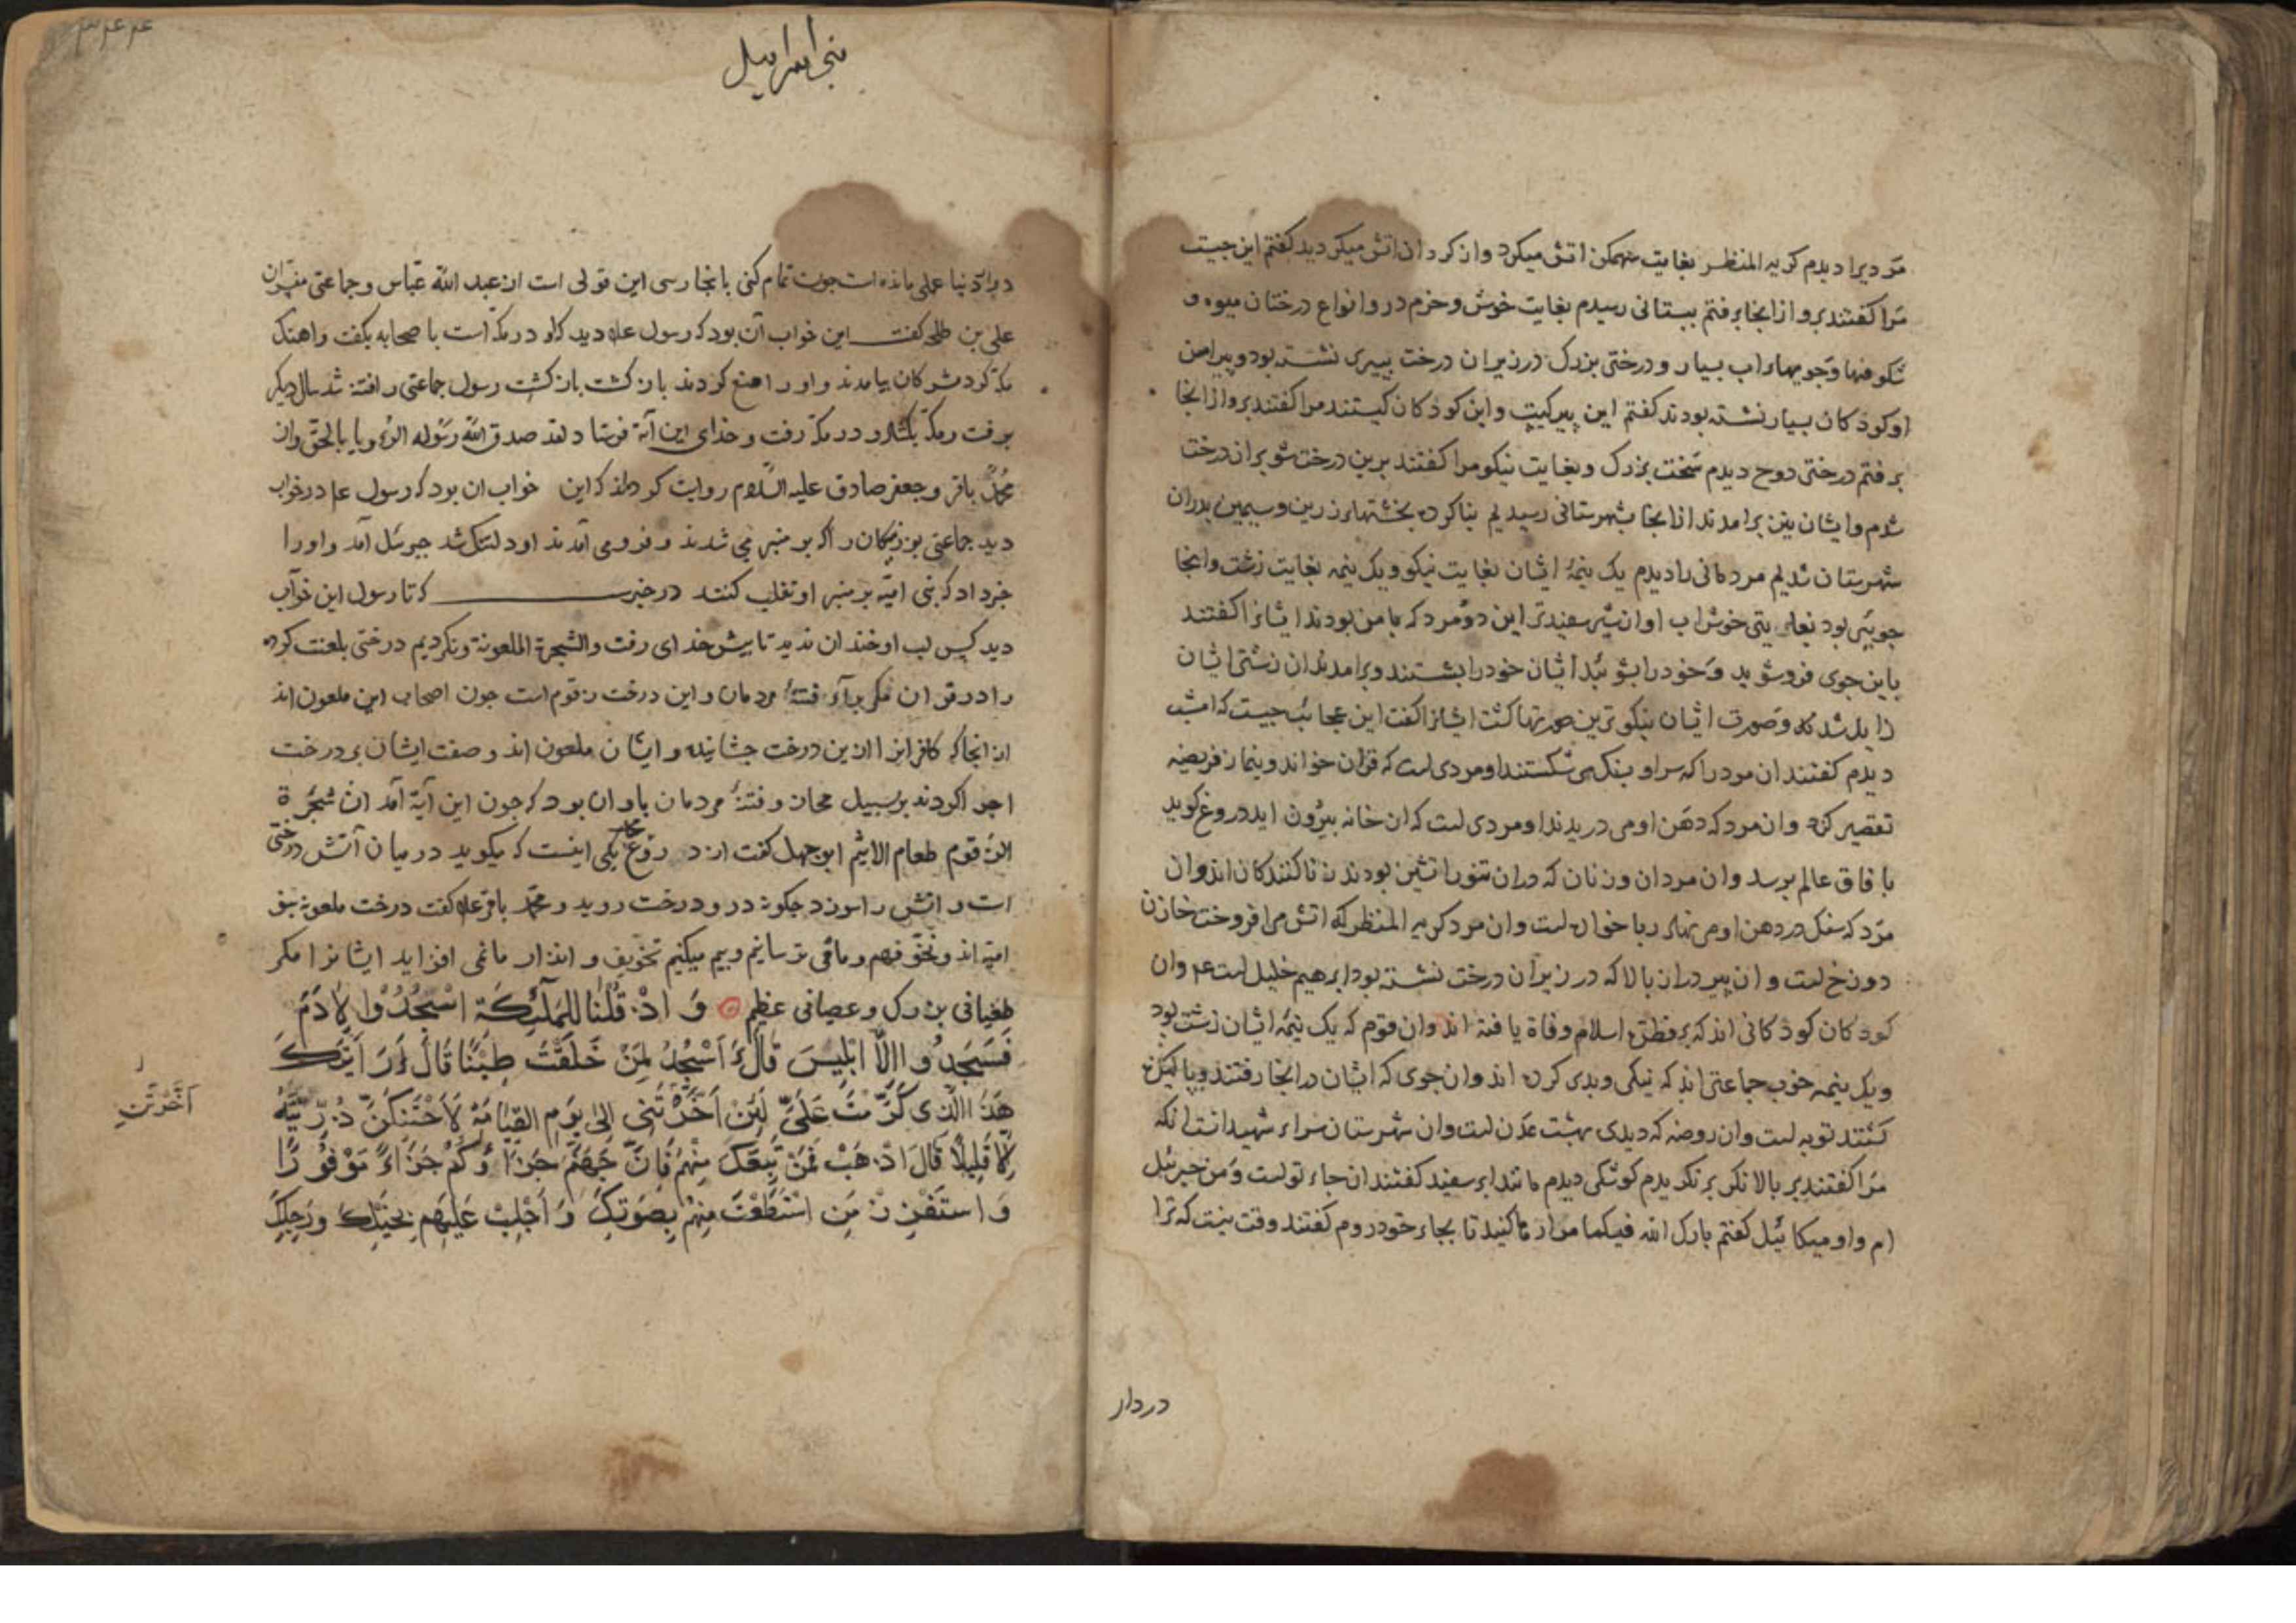 مردیرا دیدم کریه المنظر بغایت سهمکن اتش میکرد وان کرد ان اتش میکردید کفتم این جیست
مرا کفتند برو از انجا برفتم ببستانی رسیدم بغایت خوش و خرم درو انواع درختان میوه و
شکوفها وجویهاء اب بسیار و درختی بزرک در زیر ان درخت پیری نشسته بود و پیرامن
او کوذکان بسیار نشسته بودند کفتم این پیر کیست واین کوذکان کیستند مرا کفتند برو از انجا
برفتم درختی دوح دیدم سخت بزرک و بغایت نیکو مرا کفتند برین درخت شو بران درخت
شدم وایشان نیز برامدند از انجا بشهرستانی رسیدیم بنا کرده بخشتهاء زرین وسیمین بدران
شهرستان شدیم مردمانی را دیدم یک نیمهٔ ایشان بغایت نیکو ویک نیمه بغایت زشت وانجا
جویی بود بغایتی خوش اب او از شیر سفیدتر این دو مرد که با من بودند ایشانرا کفتند
باین جوی فروشوید وخود را بشویید ایشان خود را بشستند وبرامدند ان زشتی ایشان
زایل شده وصورت ایشان نیکوترین صورتها کشت ایشانرا کفت این عجائب جیست که امشب
دیدم کفتند ان مرد را که سر او بسنک می شکستند او مردی است که قران خواند ونماز فریضه
تقصیر کند وان مرد که دهن او می دریدند او مردی است که از خانه بیرون اید دروغ کوید
بافاق عالم برسد وان مردان وزنان که دران تنور اتشین بودند زناکنندکان اند وان
مرد که سنک در دهن او می نهاد ربا خوار است وان مرد کریه المنظر که اتش می افروخت خازن
دوزخ است وان پیر دران بالا که در زیر ان درخت نشسته بود ابرهیم خلیل است عم وان
کودکان کوذکانی اند که بر فطرة اسلام وفاة یافته اند وان قوم که یک نیمه ایشان زشت بود
ویک نیمه خوب جماعتی اند که نیکی وبدی کرده اند وان جوی که ایشان درانجا رفتند وپاکیزه
کشتند توبه است وان روضه که دیدی بهشت عدن است وان شهرستان سراء شهیدانست انکه
مرا کفتند بر بالا نکر بر نکریدم کوشکی دیدم مانند ابر سفید کفتند ان جاء تو است ومن جبرئیل
ام واو میکائیل کفتم بارک الله فیکما مرا رها کنید تا بجاء خود روم کفتند وقت نیست که ترا
دردار
بنی اسرائیل
در دنیا عملی مانده است جون تمام کنی بانجا رسی این قولی است از عبد الله عباس وجماعتی مفسران
علی بن طلحه کفت این خواب آن بود که رسول علا دید که او در مکه است با صحابه بکفت واهنک
مکه کرد مشرکان بیامدند واو را منع کردند باز کشت باز کشت رسول جماعتی را فتنه شد سال دیکر
برفت ومکه بکشاد ودر مکه رفت وخدای این آیة فرستاد لقد صدق الله رسوله الرؤیا بالحق واز
محمد باقر وجعفر صادق علیه السلام روایت کرده اند که این خواب ان بود که رسول عم در خواب
دید جماعتی بوزنیکان را که بر منبر می شدند وفرو می آمدند او دلتنک شد جبرئیل آمد واو را
خبر داد که بنی امیّه بر منبر او تغلب کنند در خبرست که تا رسول این خواب
دید کس لب او خندان ندید تا پیش خدای رفت والشجرة الملعونة ونکردیم درختی بلعنت کرده
را در قران مکر برآء فتنهٔ مردمان واین درخت زقوم است جون اصحاب این ملعون اند
از انجا که کافرانرا ازین درخت جشانیده وایشان ملعون اند وصفت ایشان بر درخت
اجرا کردند بر سبیل مجاز وفتنهٔ مردمان باو ان بود که جون این آیة آمد ان شجرة
الزقوم طعام الاثیم ابوجهل کفت از دروغ محمد یکی اینست که میکوید در میان آتش درختی
است واتش را سوزد جکونه درو درخت روید ومحمّد باقر علا کفت درخت ملعونه بنو
امیّه اند ونخوّفهم وما می ترسانیم وبیم میکنیم تخویف وانذار ما نمی افزاید ایشانرا مکر
طغیانی بزرک وعصیانی عظیم وَ اذْ قُلْنَا لِلْمَلَٓئِکَةِ اسْجُدُوْا لِاٰدَمَ
فَسَجَدُو ااِلَّا اِبْلِیسَ قَالَ ءَاَسْجُدُ لِمَنْ خَلَقْتَ طِیْنًا قَالَ اَرَاَیْتَکَ
هٰذَا الَّذِی کَرَّمْتَ عَلَیَّ لَئِنْ اَخَّرْتَنِی اِلیٰ یَوْمِ القِیٰامَةِ لَاَحْتَنِکَنَّ ذُرِّیَّتَهُ
اِلَّا قَلِیلًا قَالَ اذْهَبْ فَمَنْ تَبِعَکَ مِنْهُمْ فَاِنَّ جَهَنَّمَ جَزَاؤُکُمْ جَزَاءً مَوْفُوْرًا
وَاسْتَفْزِزْ مَنِ اسْتَطَعْتَ مِنْهُمْ بِصَوْتِکَ وَ اَجْلِبْ عَلَیْهِمْ بِخَیْلِکَ وَرَجِلِکَ
اَخَّرْتَنِ